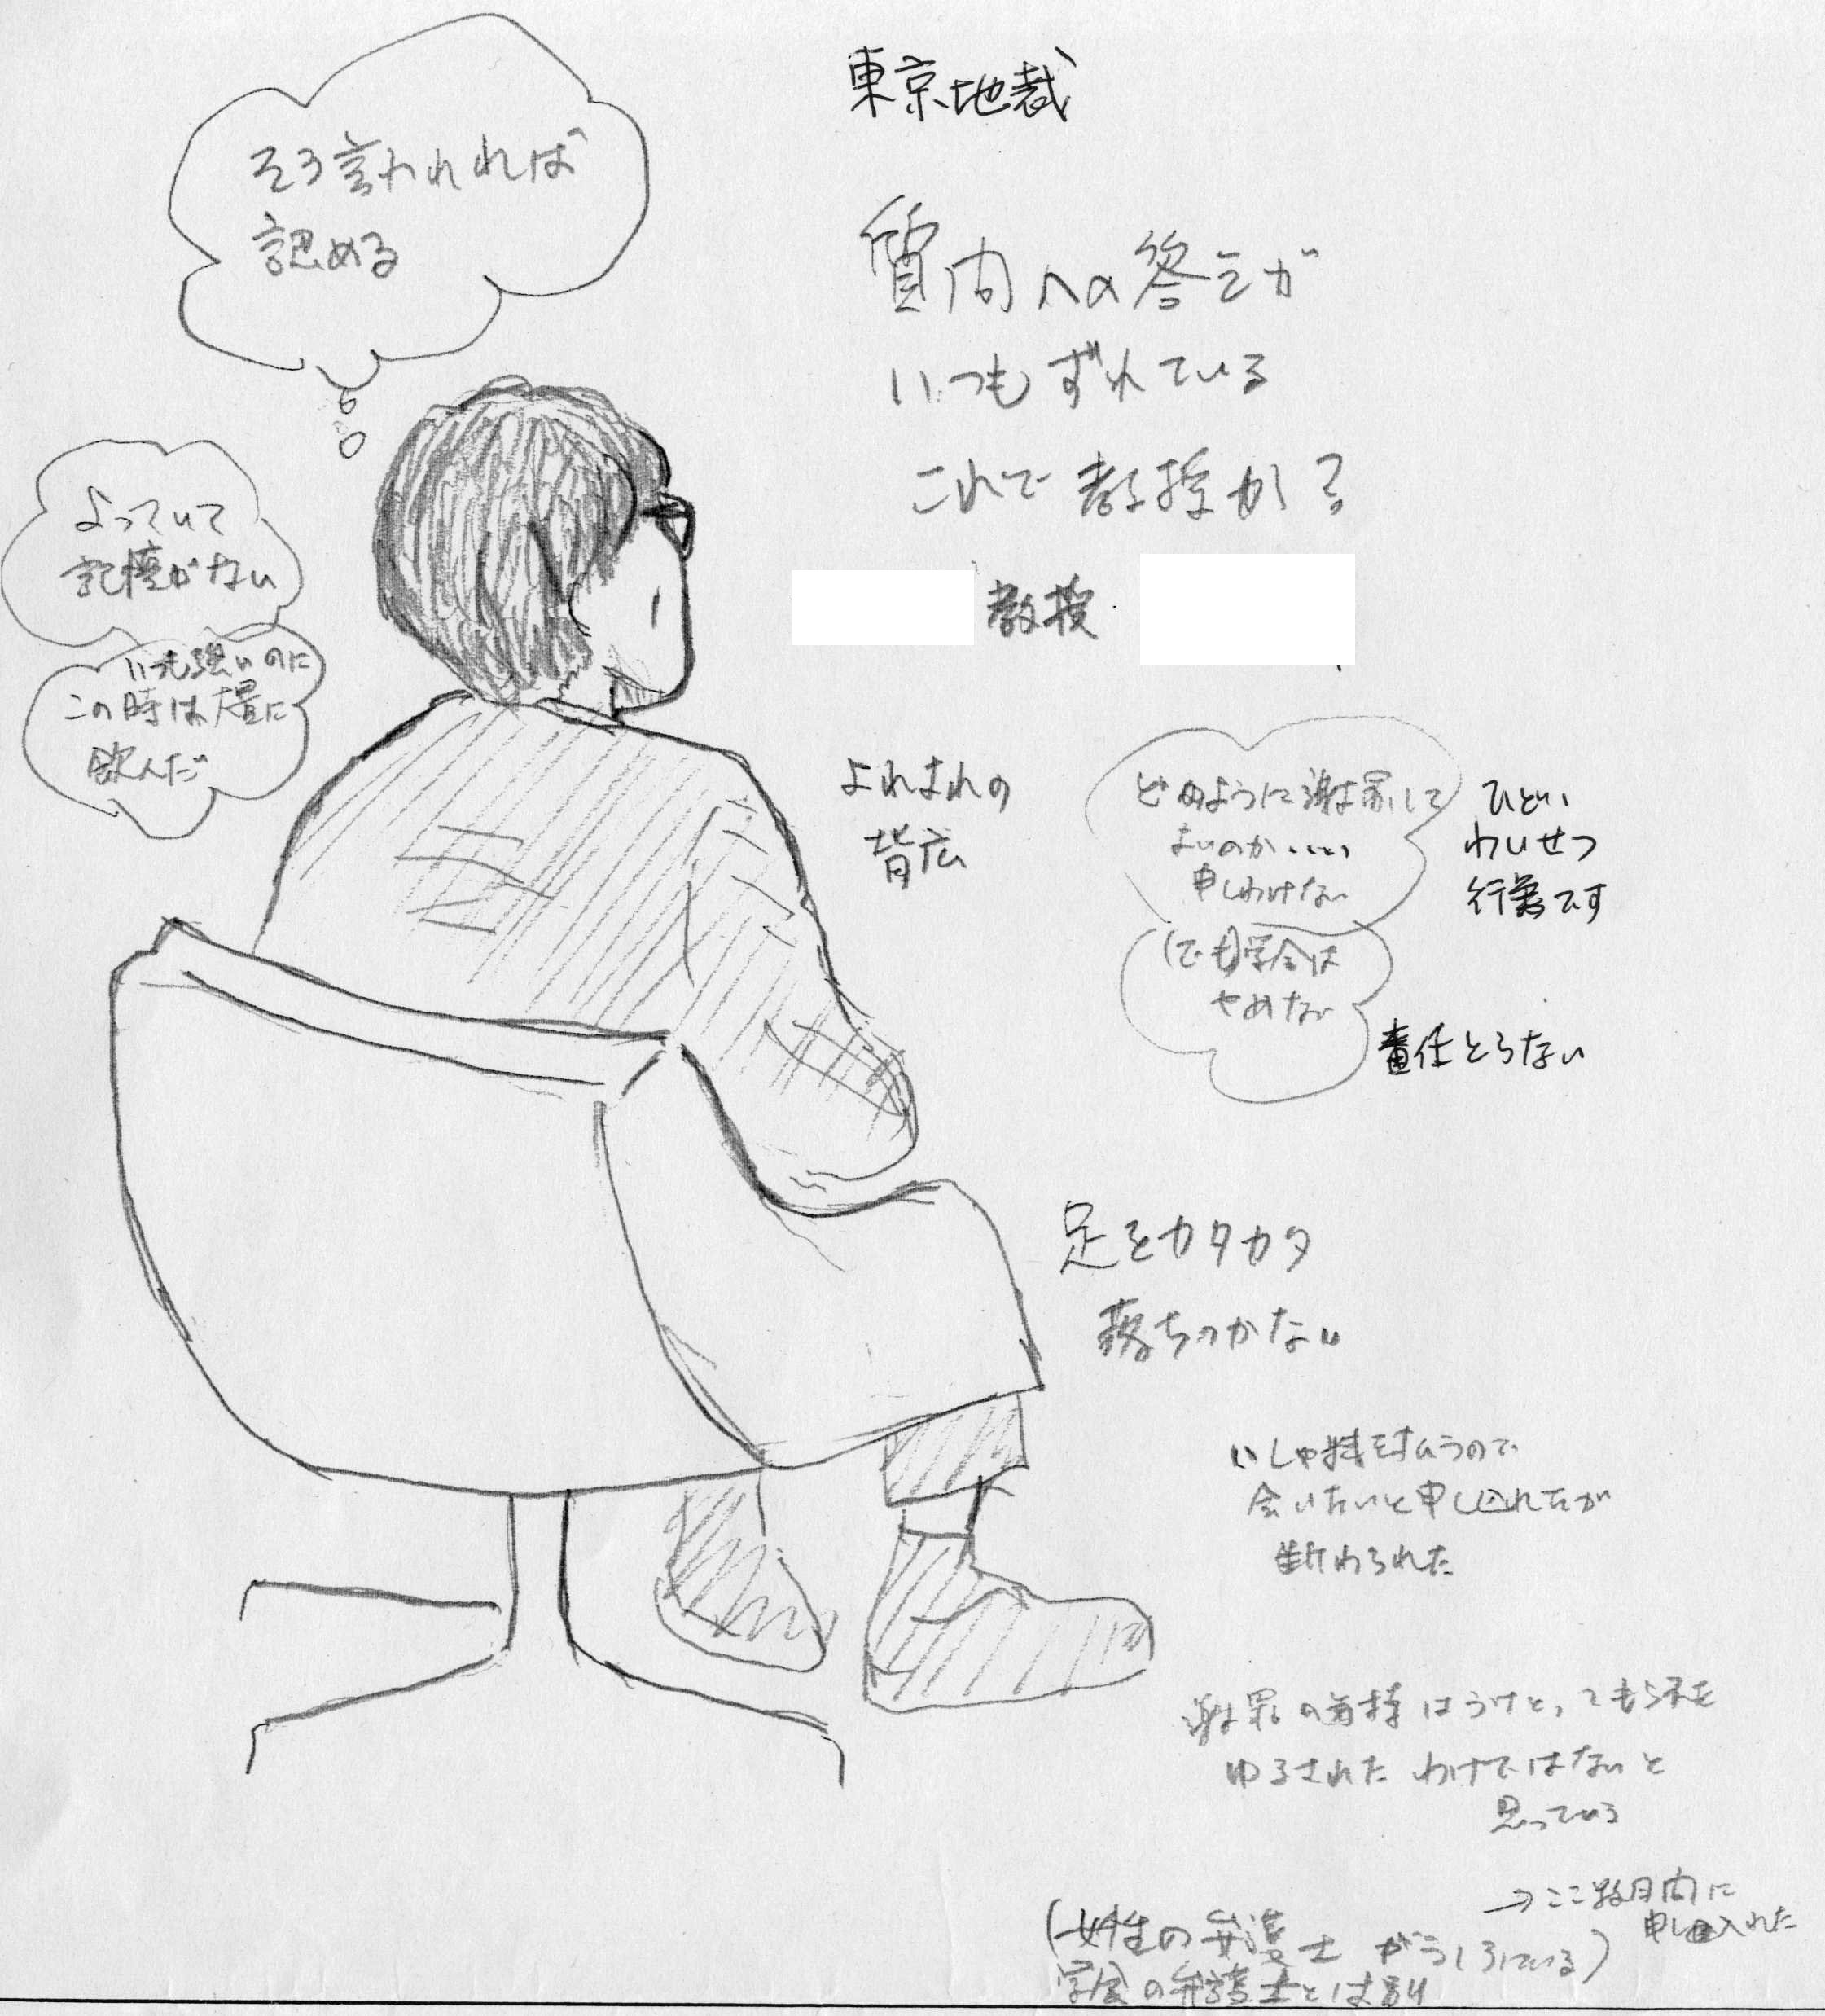 東京地裁
そう言われれば
認める
質問への答えが
いつもずれている
これで教授か?
教授
よっていて
記憶がない
いつも強いのに
この時は大量に
飲んだ
よれよれの
背広
どのように謝罪して
よいのか・・・・
申しわけない
ひどい
わいせつ
行為です
(でも)学会は
やめない
責任とらない
足をカタカタ
落ちつかない
いしゃ料を払うので
会いたいと申し入れたが
断わられた
謝罪の気持はうけとってもらえた
ゆるされたわけではないと
思っている
→ここ数ヶ月間に
申し入れた
(女性の弁護士がうしろにいる)
の弁護士とは別